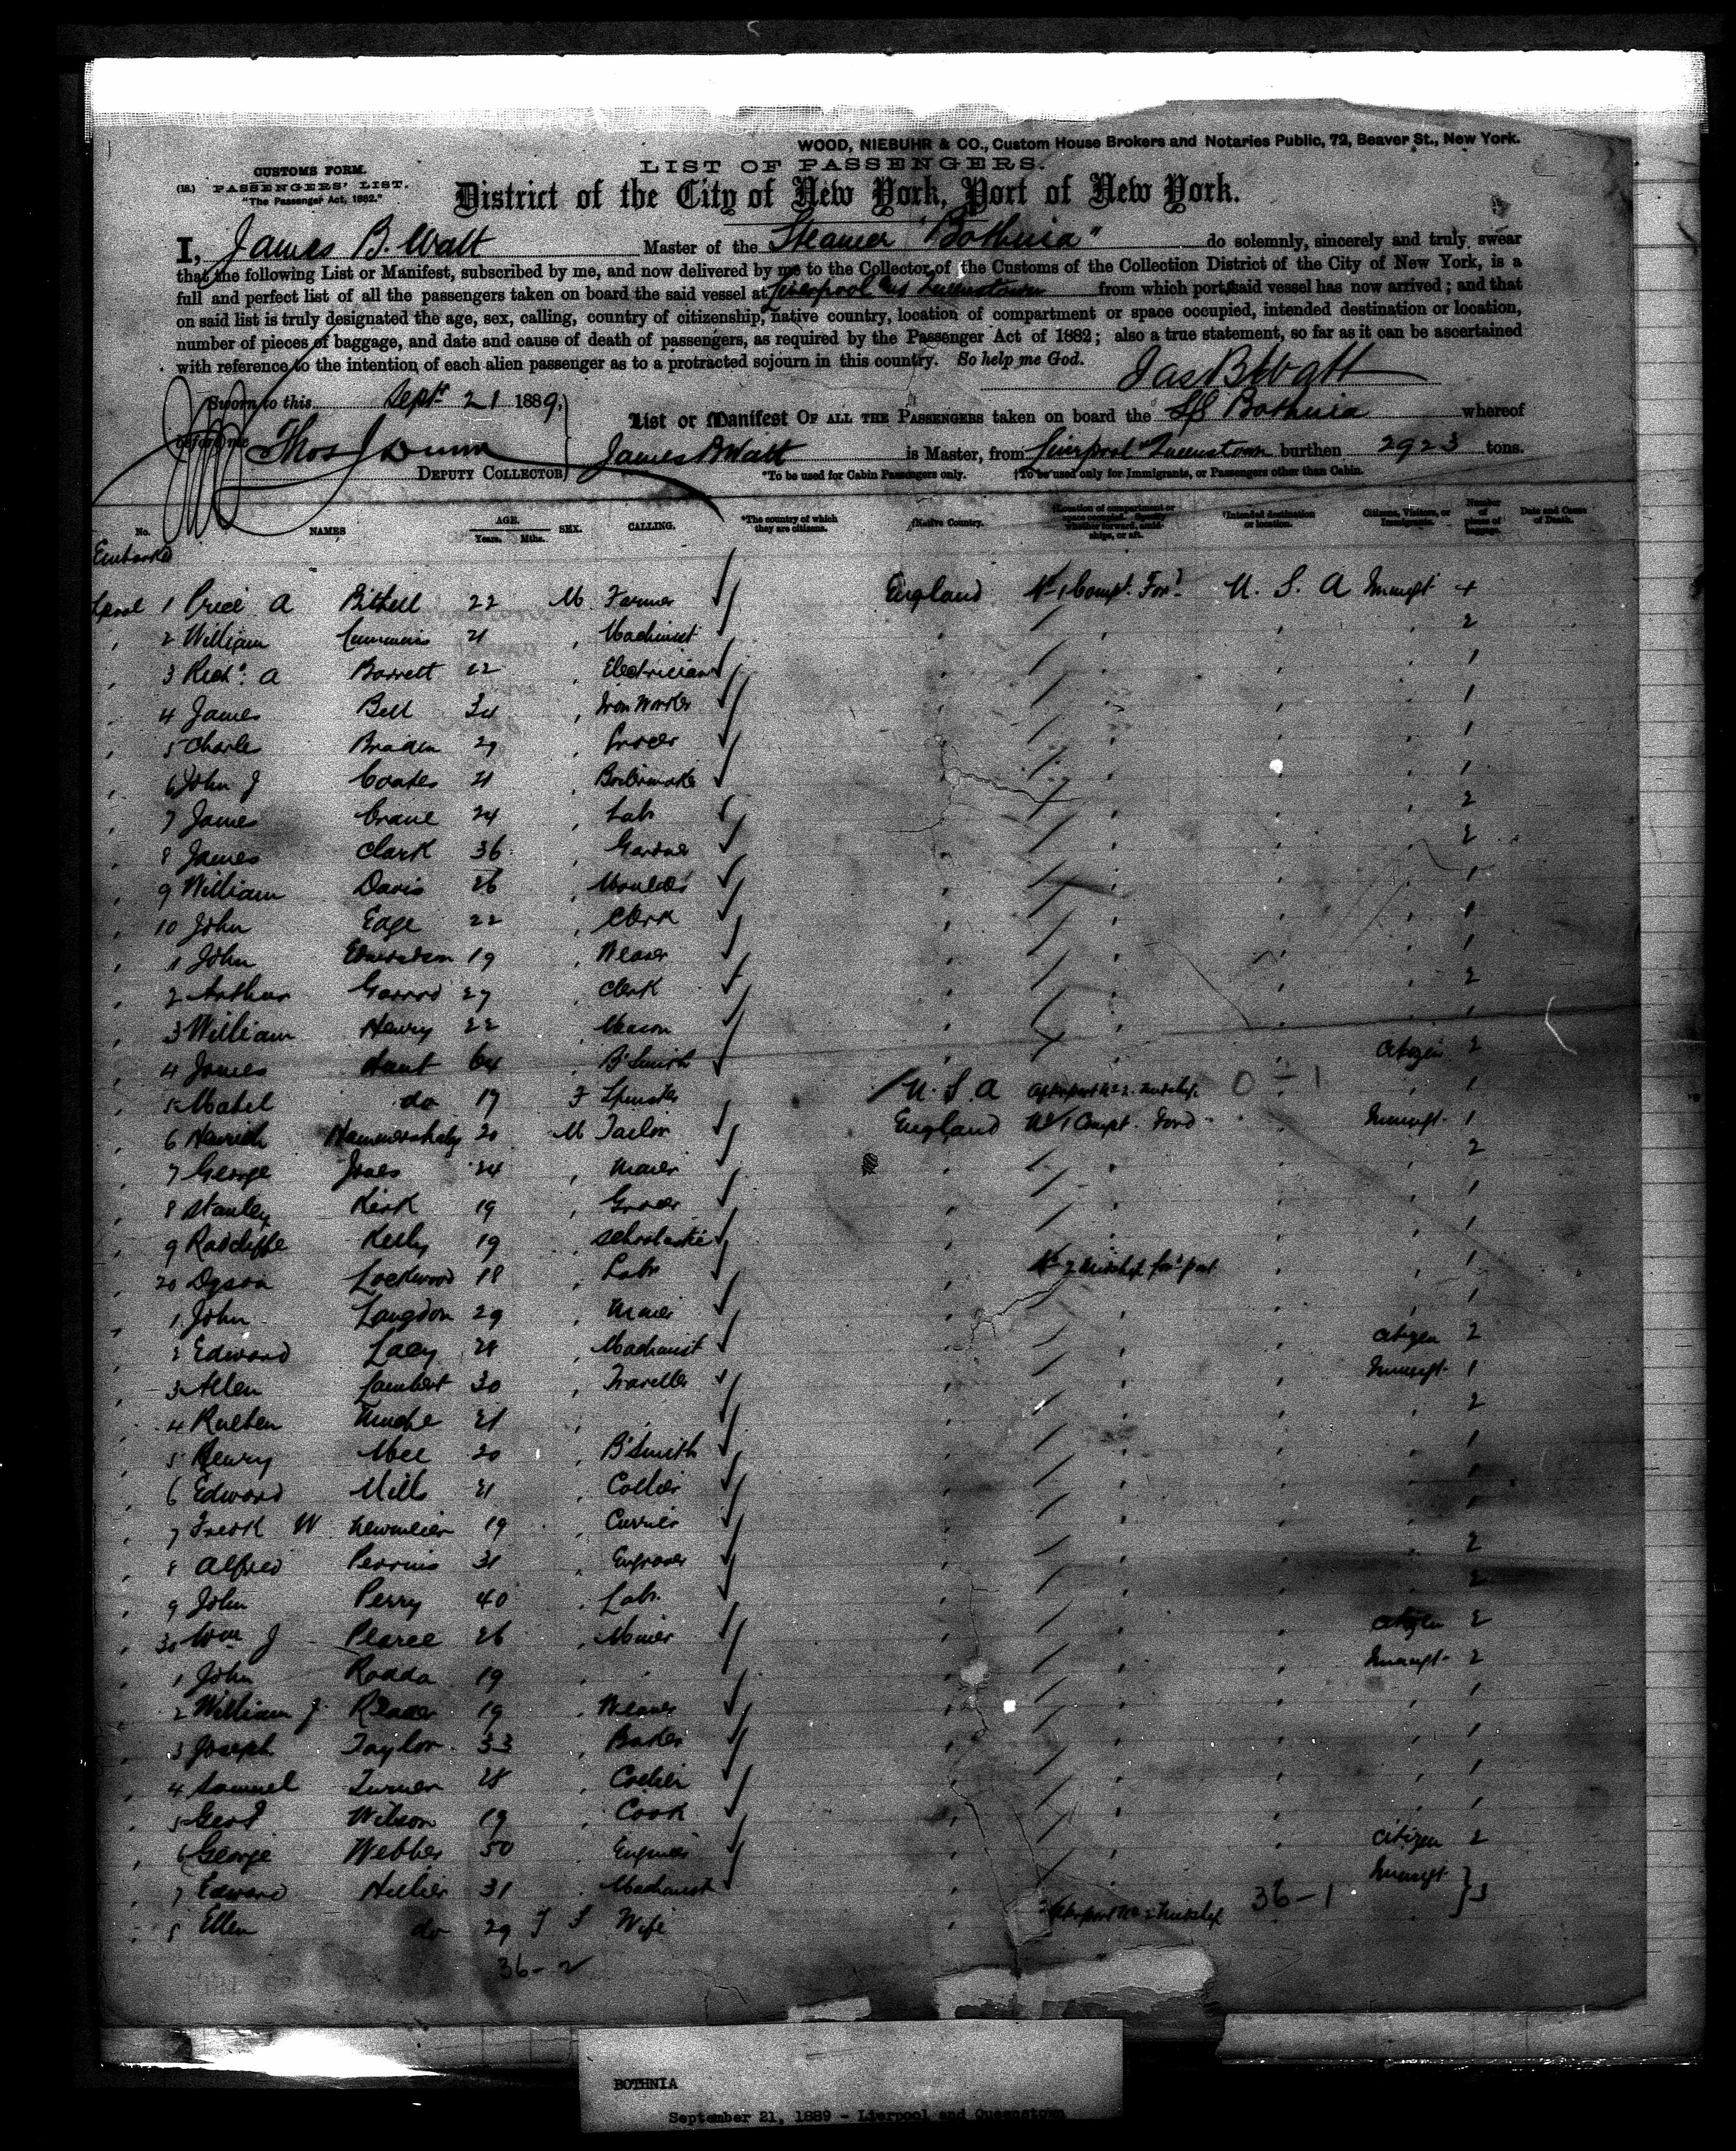 WOOD, NIEBUHR & CO., Custom House Brokers and Notaries Public, 72, Beaver St., New York.
CUSTOMS FORM.
LIST OF PASSENGERS.
(18.) PASSENGERS' LIST.
"The Passenger Act, 1882."
District of the City of New York, Port of New York.
I, James B. Watt Master of the Steamer "Bothnia" do solemnly, sincerely and truly swear
that the following List or Manifest, subscribed by me, and now delivered by me to the Collector of the Customs of the Collection District of the City of New York, is a
full and perfect list of all the passengers taken on board the said vessel at Liverpool Queenstown from which port said vessel has now arrived; and that
on said list is truly designated the age, sex, calling, country of citizenship, native country, location of compartment or space occupied, intended destination or location,
number of pieces of baggage, and date and cause of death of passengers, as required by the Passenger Act of 1882; also a true statement, so far as it can be ascertained
with reference to the intention of each alien passenger as to a protracted sojourn in this country. So help me God.
Jas B Watt
Sworn to this Sept 21 1889,
before me Thos
DEPUTY COLLECTOR
List or Manifest OF ALL THE PASSENGERS taken on board the SS Bothnia whereof
James B Watt is Master, from Liverpool Queenstown burthen 2923 tons.
*To be used for Cabin Passengers only. †To be used only for Immigrants, or Passengers other than Cabin.
No. NAMES AGE. Years. Mths. SEX. CALLING. *The country of which they are citizens. †Native Country. †Intended destination or location. Citizens, Visitors, or Immigrants. Number of pieces of baggage. Date and Cause of Death.
Embarked
1 Price A Bithell 22 M Farmer England U. S. A 4
2 William Cummins 21 Machinist 2
3 Richd. A Barrett 22 Electrician 1
4 James Bell 34 Iron Worker 1
5 Charles Braden 29 Grocer 1
6 John J Coates 21 Boilermaker 1
7 James Crane 24 Labr 2
8 James Clark 36 2
9 William Davis 26 Moulder 1
10 John Edge 22 Clerk 1
1 John 19 Weaver 1
2 Arthur Garrod 27 Clerk 2
3 William Henry 22 Mason
4 James Hunt 64 B'Smith Citizen 2
5 Mabel do 19 F Spinster U. S. A 0-1 1
6 20 M Tailor England 1
7 George Jones 24 Miner 2
8 Stanley Kirk 19 Grocer 1
9 Radcliffe Kelly 19 1
20 Dyson Lockwood 18 Labr 1
1 John Langdon 29 Miner 1
2 Edward Lacy 28 Machinist Citizen 2
3 Allen Lambert 30 Traveller 1
4 Rueben 21 2
5 Henry Mee 20 B'Smith 1
6 Edward Mills 21 Collier
7 Fredk W 19 Currier
8 Alfred Perrins 31 Engraver 2
9 John Perry 40 Labr. 2
30 Wm J Pearce 26 Miner Citizen 2
1 John Rodda 19 2
2 William J. Reader 19 Weaver 1
3 Joseph Taylor 33 Baker 1
4 Samuel Turner 28 Collier 1
5 Wilson 19 Cook 1
6 George Webber 50 Engineer Citizen 2
7 Edward Hillier 31 Machinist
8 Ellen do 29 Wife 36-1
36-2
BOTHNIA
September 21, 1889 - Liverpool and Queenstown